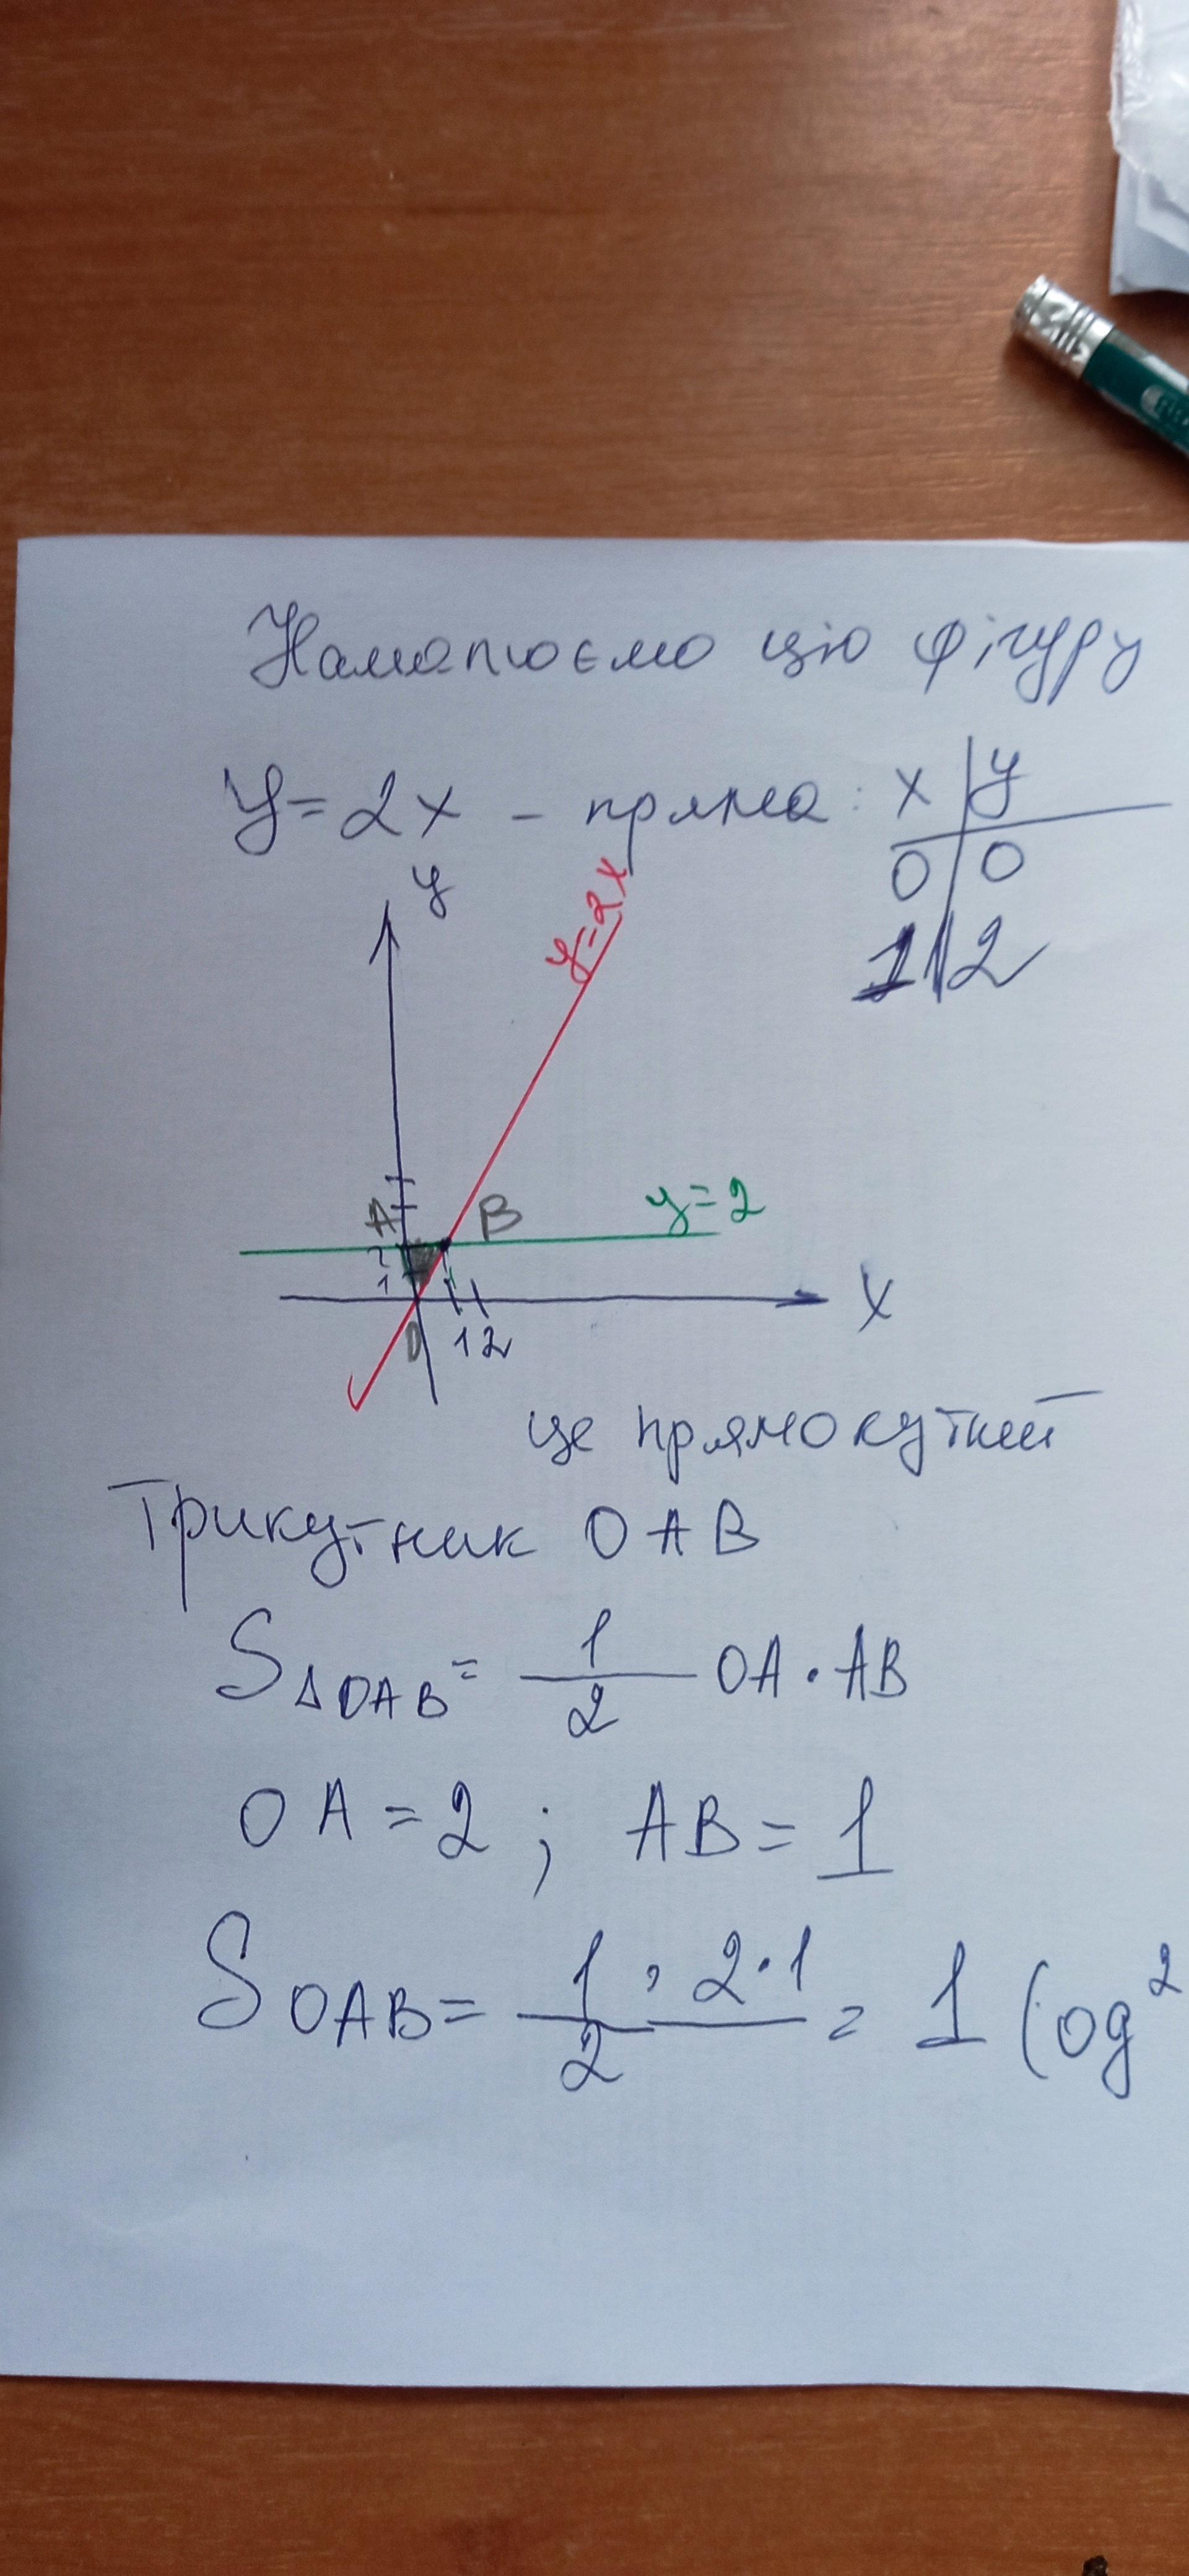 Намалюємо цю фігуру
y=2x - пряма: x | y
0 | 0
1 | 2
y
y=2x
A B y=2
2
1
x
O 1 2
це прямокутний
Трикутник OAB
S△OAB = 1/2 OA · AB
OA = 2 ; AB = 1
SOAB = 1/2 · 2·1 = 1 (од²